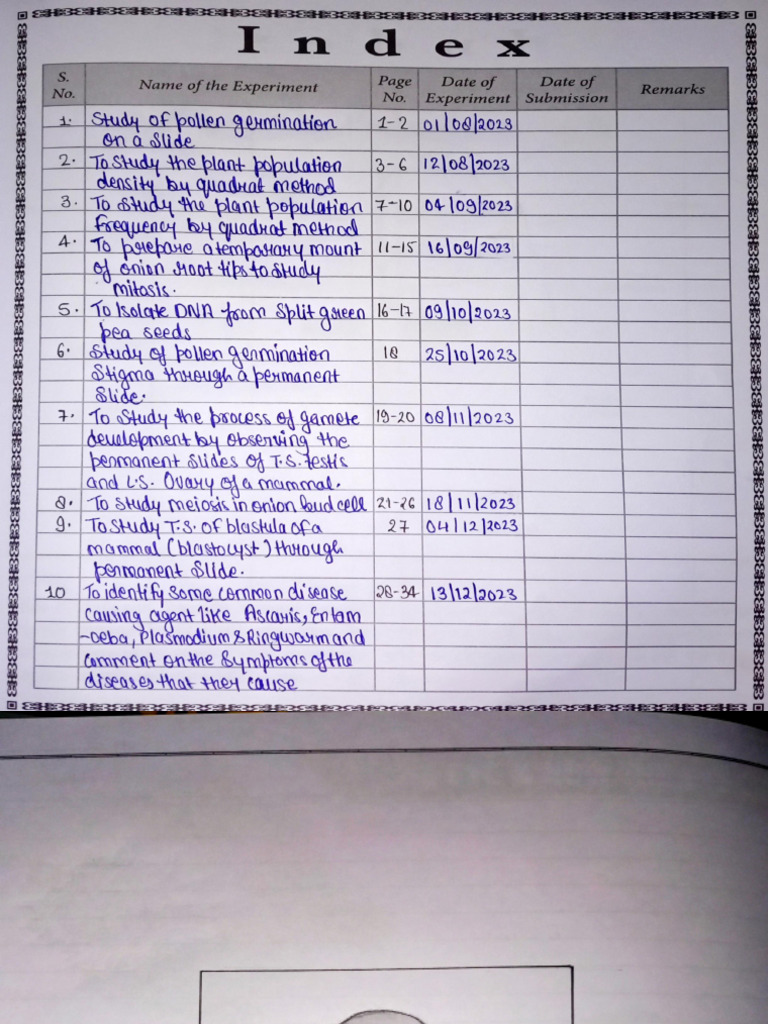 Index
S. No. Name of the Experiment Page No. Date of Experiment Date of Submission Remarks
1. Study of pollen germination 1-2 01/08/2023
on a Slide
2. To Study the plant population 3-6 12/08/2023
density by quadrat method
3. To Study the plant population 7-10 04/09/2023
frequency by quadrat method
4. To prepare a temporary mount 11-15 16/09/2023
of onion root tips to study
mitosis.
5. To Isolate DNA from Split green 16-17 09/10/2023
pea seeds
6. Study of pollen germination 18 25/10/2023
Stigma through a permanent
Slide.
7. To Study the process of gamete 19-20 08/11/2023
development by observing the
permanent slides of T.S. Testis
and L.S. Ovary of a mammal.
8. To study meiosis in onion bud cell 21-26 18/11/2023
9. To Study T.S. of blastula of a 27 04/12/2023
mammal (blastocyst) through
permanent Slide.
10 To identify some common disease 28-34 13/12/2023
causing agent like Ascaris, Entam
-oeba, Plasmodium & Ringwarm and
comment on the Symptoms of the
diseases that they cause